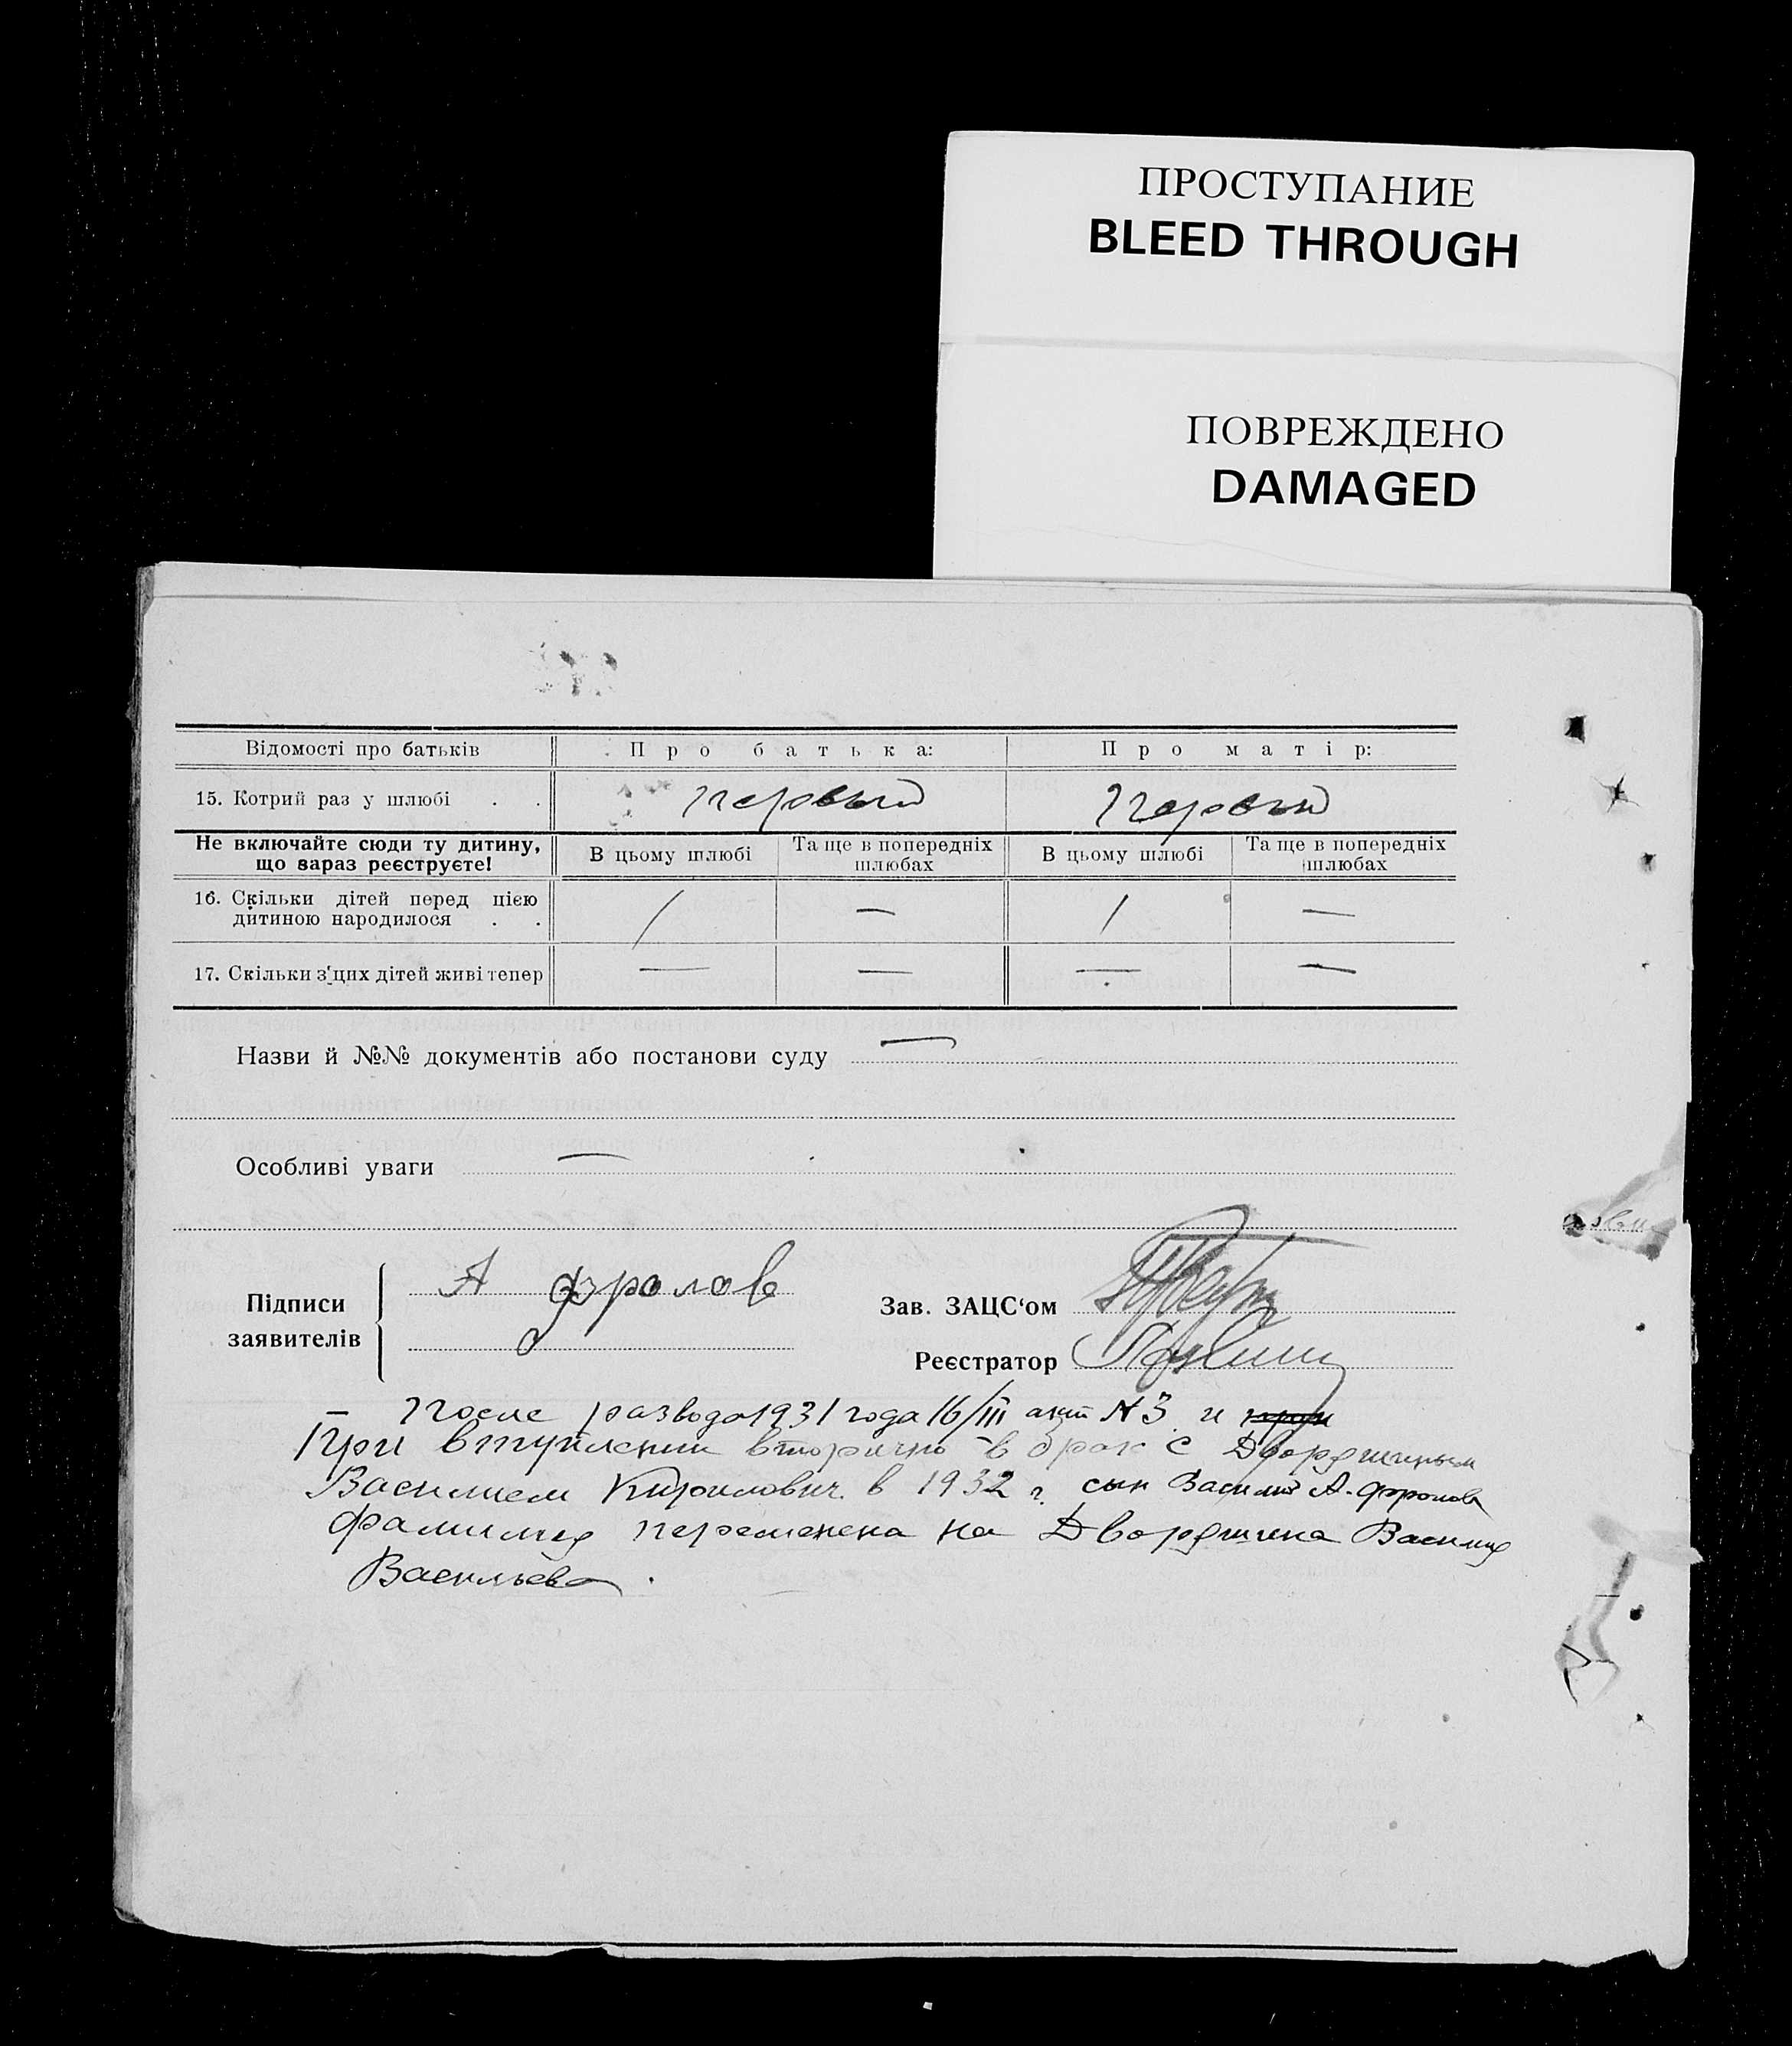 ПРОСТУПАНИЕ
BLEED THROUGH
ПОВРЕЖДЕНО
DAMAGED
Відомості про батьків Про батька: Про матір:
15. Котрий раз у шлюбі . . первый Первый
Не включайте сюди ту дитину, що зараз реєструєте! В цьому шлюбі Та ще в попередніх шлюбах В цьому шлюбі Та ще в попередніх шлюбах
16. Скільки дітей перед цією дитиною народилося . . / — / —
17. Скільки з'цих дітей живі тепер — — — —
Назви й №№ документів або постанови суду —
Особливі уваги —
Підписи заявителів А фролов
Зав. ЗАЦС‘ом
Реєстратор
— После развода 1931 года 16/III акт N 3 и при
При вступлении вторично в брак с Дворяшиным
Василием Кирилович. в 1932 г. сын Василий А. Фролова
фамилия переменена на Дворяшина Василия
Васильева.